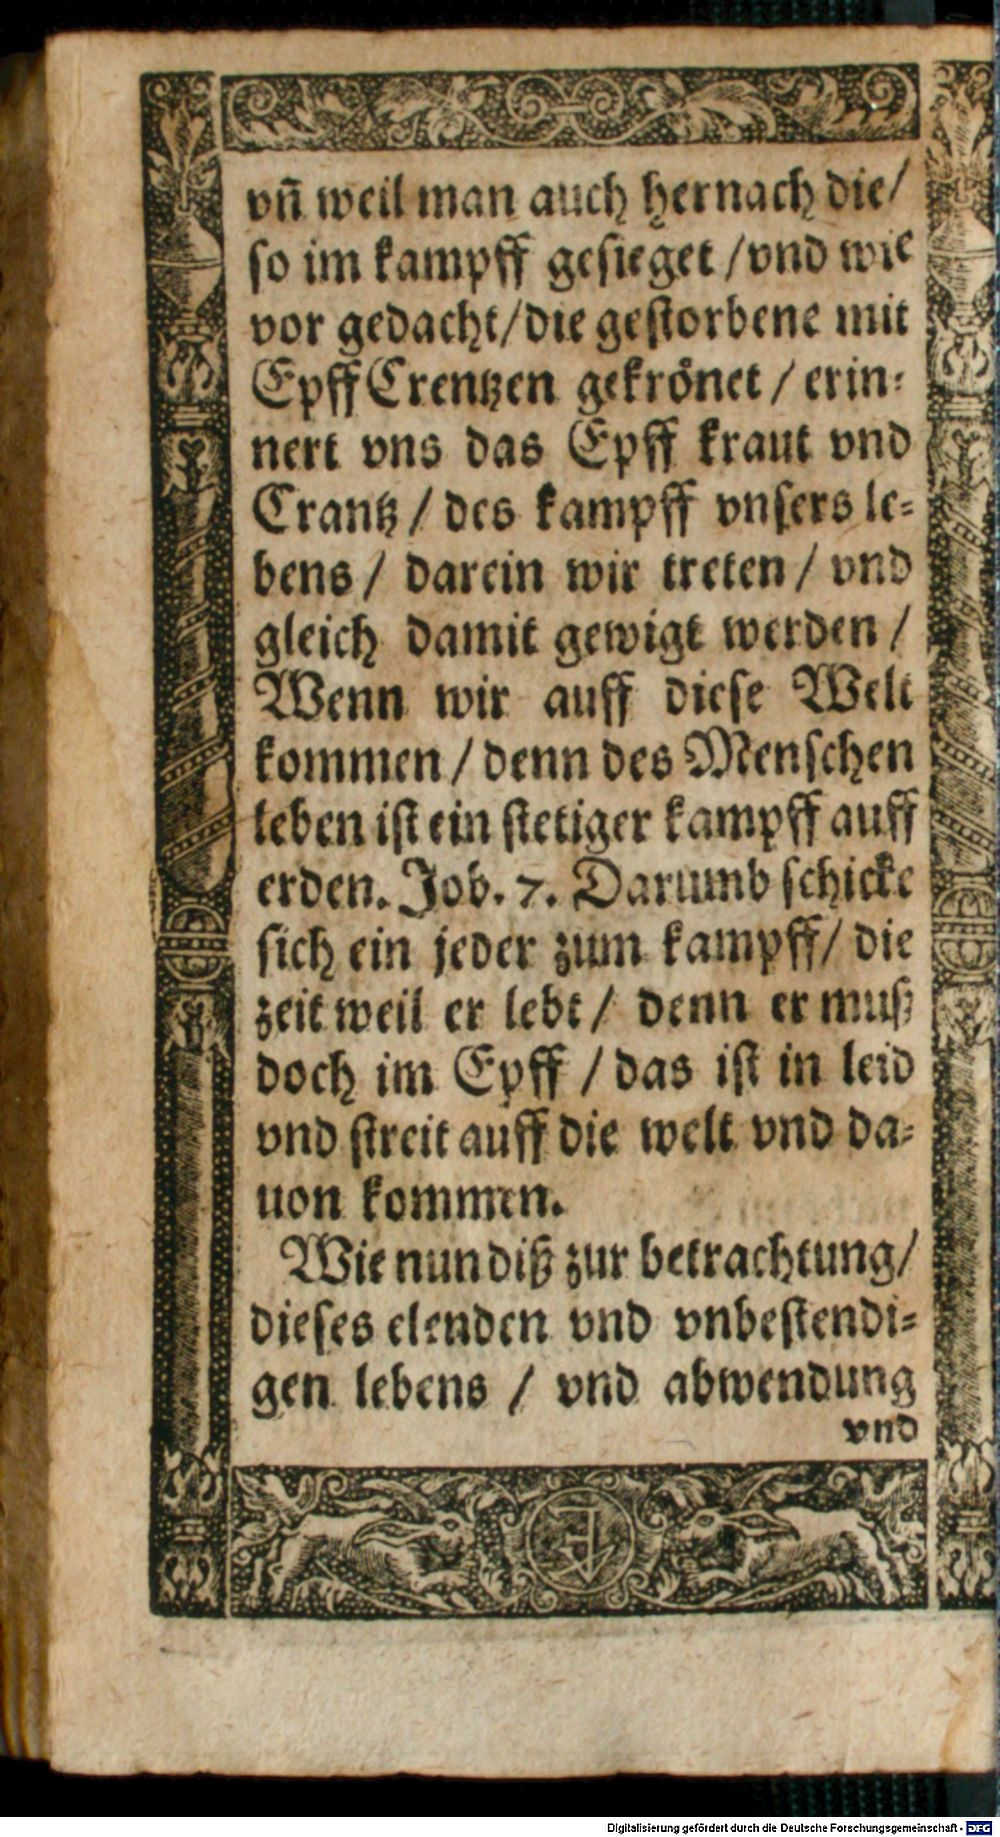 vñ weil man auch hernach die/
so im kampff gesieget /vnd wie
vor gedacht/die gestorbene mit
Epff Crentzen gekrönet / erin-
nert vns das Epff kraut vnd
Crantz / des kampff vnsers le-
bens / darein wir treten / vnd
gleich damit gewigt werden /
Wenn wir auff diese Welt
kommen / denn des Menschen
leben ist ein stetiger kampff auff
erden. Job. 7. Darumb schicke
sich ein jeder zum kampff/ die
zeit weil er lebt / denn er muß
doch im Epff / das ist in leid
vnd streit auff die welt vnd da-
uon kommen.
Wie nun diß zur betrachtung/
dieses elenden vnd vnbestendi-
gen lebens / vnd abwendung
vnd
Digitalisierung gefördert durch die Deutsche Forschungsgemeinschaft - DFG